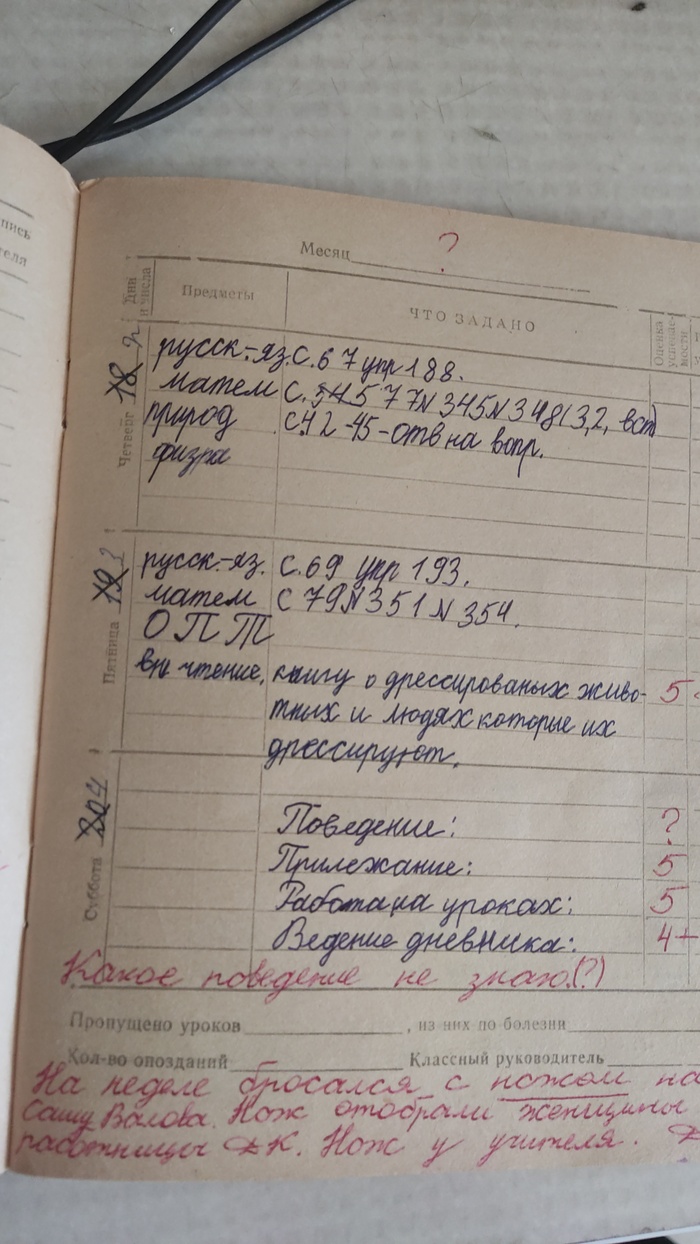 пись
теля
Месяц ?
Дни и числа Предметы ЧТО ЗАДАНО Оценка успеваемости
Четверг 18 2 русск.-яз. с. 67 упр 188.
матем с. 345 77 N 345 N 348 (3,2, вст)
природ с. 42-45-отв на вопр.
физра
Пятница 19 3 русск.-яз. с. 69 упр 193.
матем с 79 N 351 N 354.
ОПТ
вн чтение, книгу о дрессированых живо- 5
тных и людях которые их
дрессируют.
Суббота 20 4
Поведение: ?
Прилежание: 5
Работа на уроках: 5
Ведение дневника: 4+
Какое поведение не знаю.(?)
Пропущено уроков , из них по болезни
Кол-во опозданий Классный руководитель
На неделе бросался с ножом на
Сашу Валова. Нож отобрали женщины
работницы ДК. Нож у учителя.